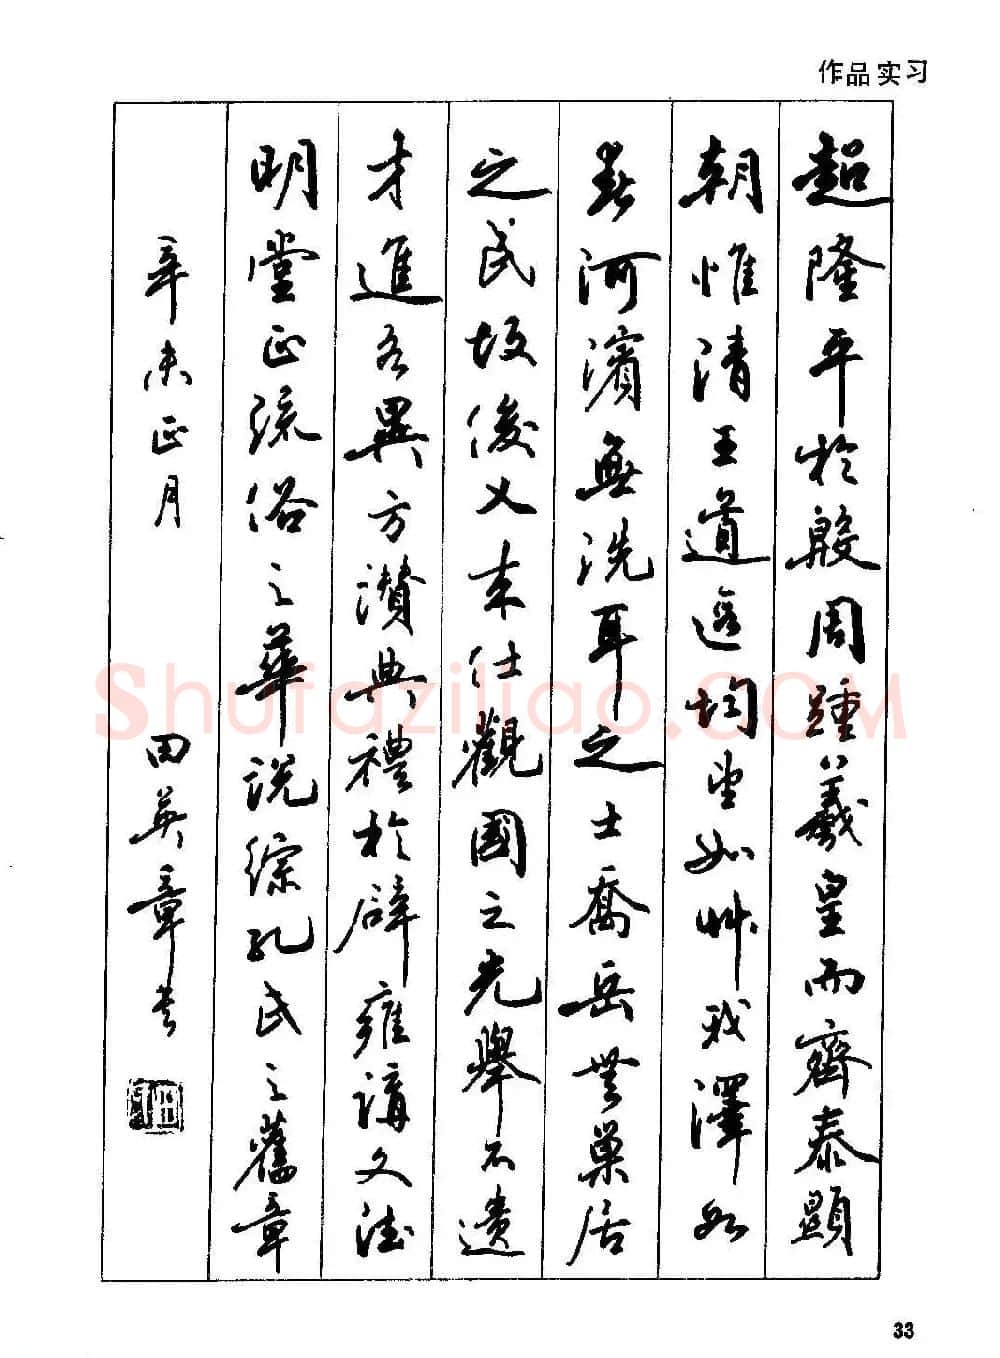 作品实习
超隆平於殷周踵羲皇而齊泰顯
朝惟清王道遐均望如艸我澤如
春河濱無洗耳之士喬岳無巢居
之民故俊乂来仕觀國之光舉不遺
才進各異方讚典禮於辟雍講文德
明堂正流俗之華説綜孔氏之舊章
辛未正月 田英章书
ShufaziliaO.COM
33